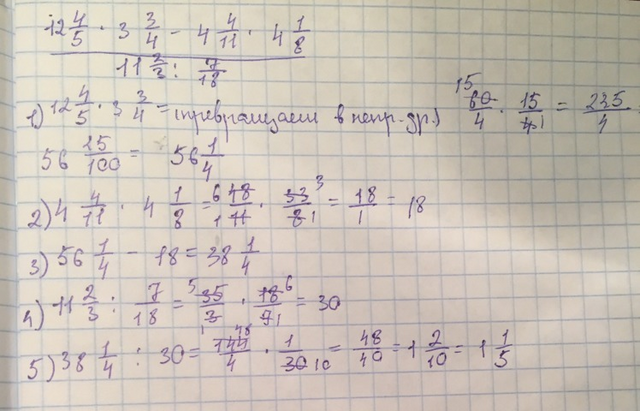 12 4/5 · 3 3/4 - 4 4/11 · 4 1/8
11 2/3 : 7/18
1) 12 4/5 · 3 3/4 = (превращаем в непр. др.) 60/4 15 · 15/4 1 = 225/4
56 25/100 = 56 1/4
2) 4 4/11 · 4 1/8 = 6 48/11 1 · 33/8 3 1 = 18/1 = 18
3) 56 1/4 - 18 = 38 1/4
4) 11 2/3 : 7/18 = 5 35/3 · 18/7 6 1 = 30
5) 38 1/4 : 30 = 144/4 48 · 1/30 10 = 48/40 = 1 2/10 = 1 1/5